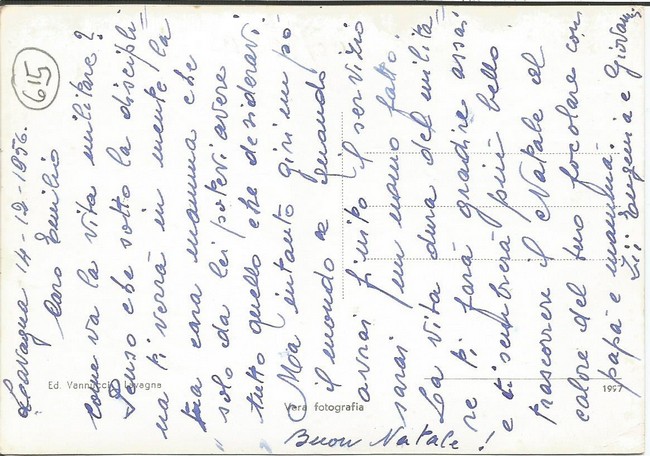 615
Lavagna 14-12-1956.
Caro Emilio
come va la vita militare?
Penso che sotto la discipli=
na ti verrà in mente la
tua cara mamma che
"solo da lei potevi avere
tutto quello che desideravi."
Ma intanto giri un pò
il mondo e quando
avrai finito il servizio
sarai un uomo fatto.
La vita dura del milita=
re ti farà gradire assai
e ti sembrerà più bello
trascorrere il Natale col
calore del tuo focolare con
papà e mamma.
Zii Eugenia e Giovanni
Buon Natale!
Ed. Vannucci - Lavagna
Vera fotografia
1997